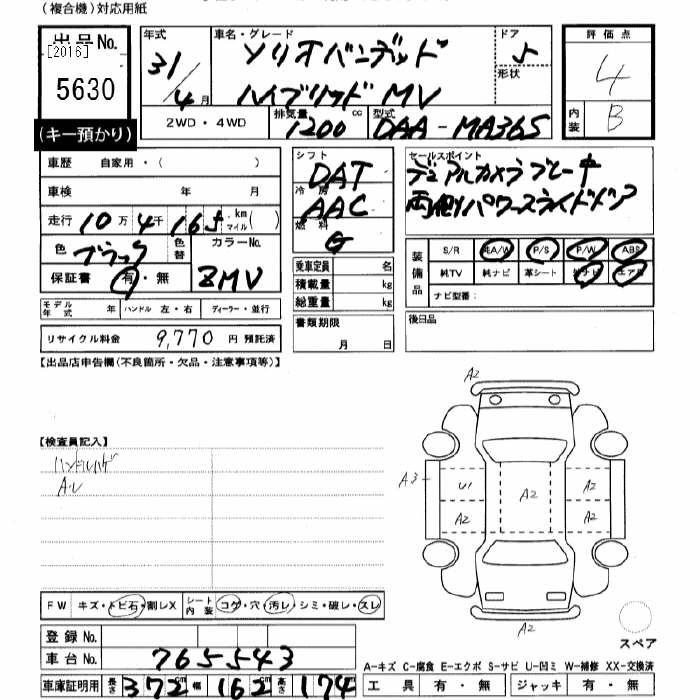 (複合機)対応用紙
出品No.
[2016]
5630
(キー預かり)
年式
31/4月
車名・グレード
ソリオバンデット
ハイブリッドMV
ドア
5
形状
評価点
4
内装
B
2WD・4WD
排気量
1200cc
型式
DAA-MA36S
車歴 自家用・( )
車検 年 月
走行 10万4千165 km マイル( )
色 ブラック
色替
カラーNo.
ZMV
保証書 有・無
モデル年式 年 ハンドル 左・右 ディーラー・並行
リサイクル料金 9,770円 預託済
シフト
DAT
冷房
AAC
燃料
G
乗車定員 名
積載量 kg
総重量 kg
書類期限
月 日
セールスポイント
デュアルカメラブレーキ
両側パワースライドドア
装備品
S/R 純A/W P/S P/W ABS
純TV 純ナビ 革シート エアB
ナビ型番:
後日品
【出品店申告欄(不良箇所・欠品・注意事項等)】
【検査員記入】
ハンドルハゲ
A.L
A2
A3
U1
A2
A2
A2
A2
A2
スペア
FW キズ・トビ石・割レX シート内装 コゲ・穴・汚レ・シミ・破レ・スレ
登録No.
車台No. 765543
車庫証明用 長さ 372cm 幅 162cm 高さ 174
A-キズ C-腐食 E-エクボ S-サビ U-凹ミ W-補修 XX-交換済
工具 有・無 ジャッキ 有・無